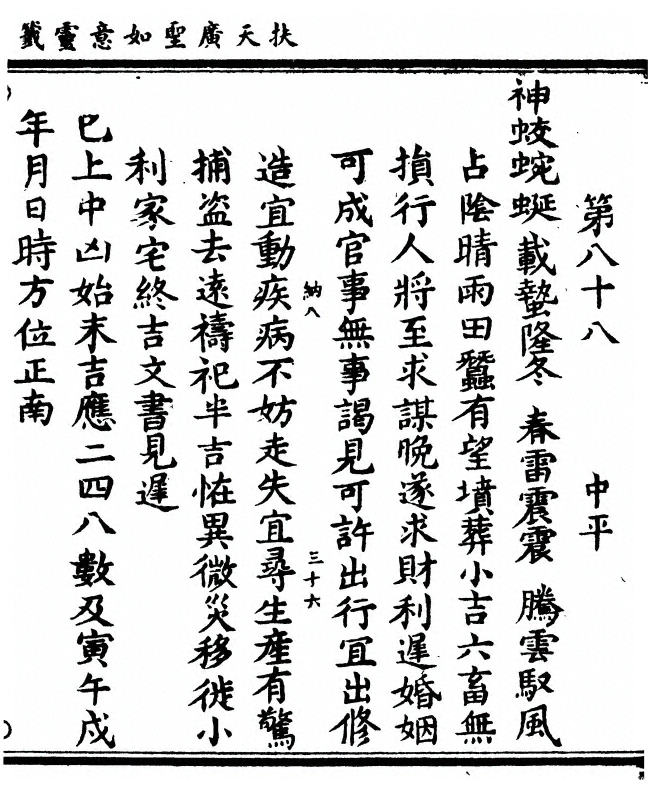 扶天廣聖如意靈籤
第八十八 中平
神蛟蜿蜒載蟄隆冬 春雷震震 騰雲馭風
占陰晴雨田蠶有望墳葬小吉六畜無
損行人將至求謀晚遂求財利遲婚姻
可成官事無事謁見可許出行宜出修
納八 三十六
造宜動疾病不妨走失宜尋生產有驚
捕盜去遠禱祀半吉恠異微災移徙小
利家宅終吉文書見遲
巳上中凶始末吉應二四八數及寅午戍
年月日時方位正南